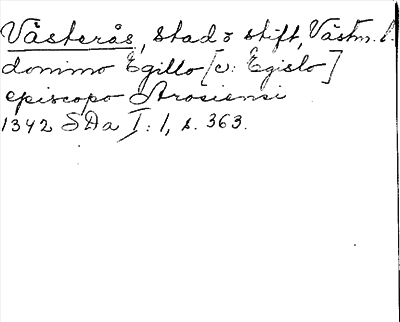 Västerås, stad o stift, Västm. l.
domino Egillo [v: Egislo]
episcopo Arosiensi
1342 SDa I: 1, s. 363.